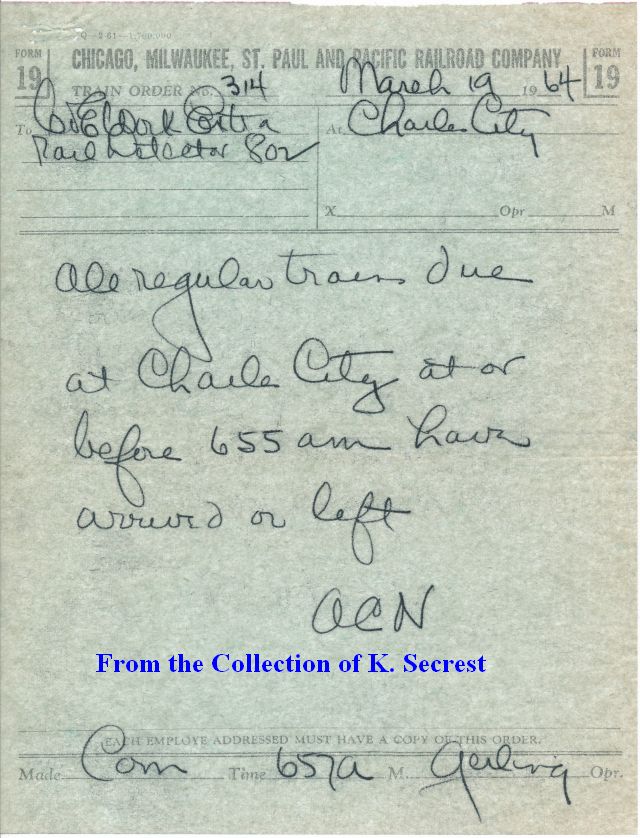 Q—2-61—1,700,000
FORM 19 CHICAGO, MILWAUKEE, ST. PAUL AND PACIFIC RAILROAD COMPANY FORM 19
TRAIN ORDER No. 314 March 19 1964
To C&E Work Extra At Charles City
Rail Detector 802
X Opr M
All regular trains due
at Charles City at or
before 655 am have
arrived or left
OCN
From the Collection of K. Secrest
EACH EMPLOYE ADDRESSED MUST HAVE A COPY OF THIS ORDER.
Made Com Time 657a M. Gerling Opr.